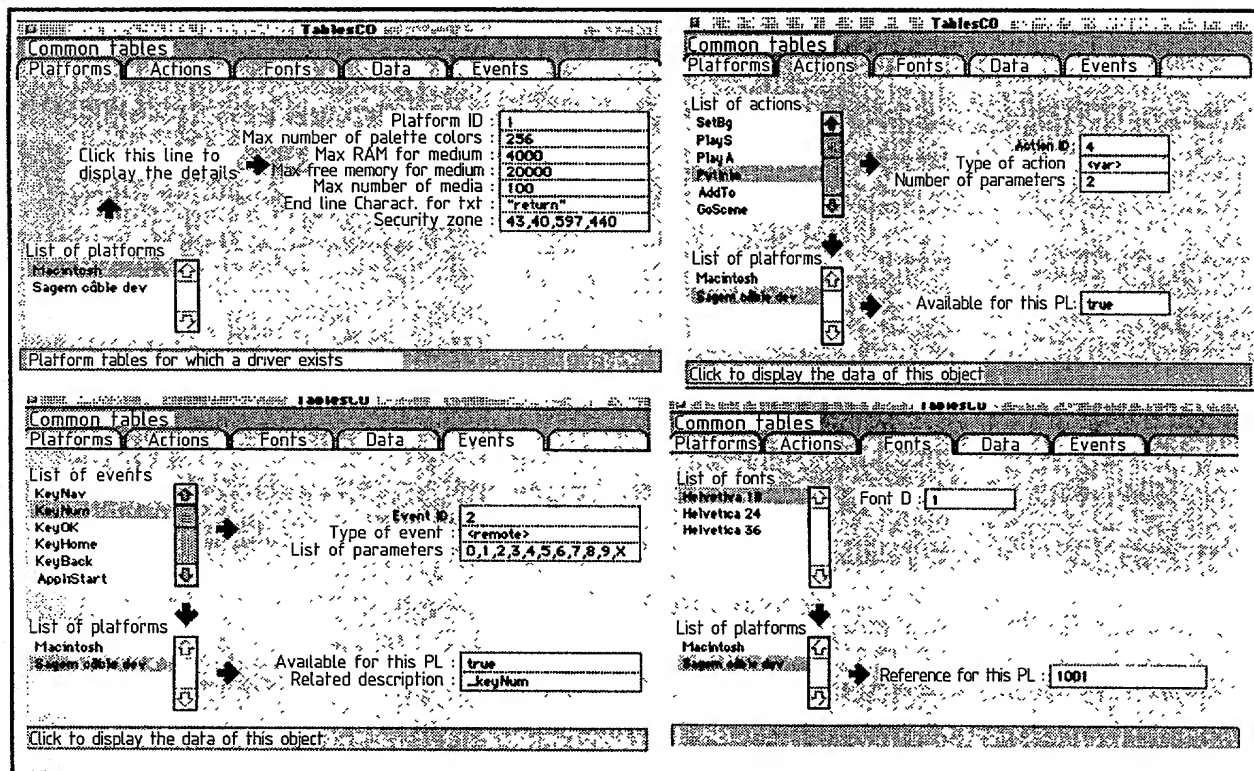 TablesCO
Common tables
Platforms Actions Fonts Data Events
Platform ID : 1
Max number of palette colors : 256
Max RAM for medium : 4000
Max free memory for medium : 20000
Max number of media : 100
End line Charact. for txt : "return"
Security zone 43,40,597,440
Click this line to
display the details
List of platforms
Macintosh
Sagem câble dev
Platform tables for which a driver exists
TablesCO
Common tables
Platforms Actions Fonts Data Events
List of actions
SetBg
PlayS
PlayA
PutInto
AddTo
GoScene
Action ID : 4
Type of action <var>
Number of parameters : 2
List of platforms
Macintosh
Sagem câble dev
Available for this PL: true
Click to display the data of this object
TablesCO
Common tables
Platforms Actions Fonts Data Events
List of events
KeyNav
KeyNum
KeyOK
KeyHome
KeyBack
AppliStart
Event ID: 2
Type of event : <remote>
List of parameters : 0,1,2,3,4,5,6,7,8,9,X
List of platforms
Macintosh
Sagem câble dev
Available for this PL : true
Related description : _keyNum
Click to display the data of this object
TablesCO
Common tables
Platforms Actions Fonts Data Events
List of fonts
Helvetica 18
Helvetica 24
Helvetica 36
Font D : 1
List of platforms
Macintosh
Sagem câble dev
Reference for this PL : 1001